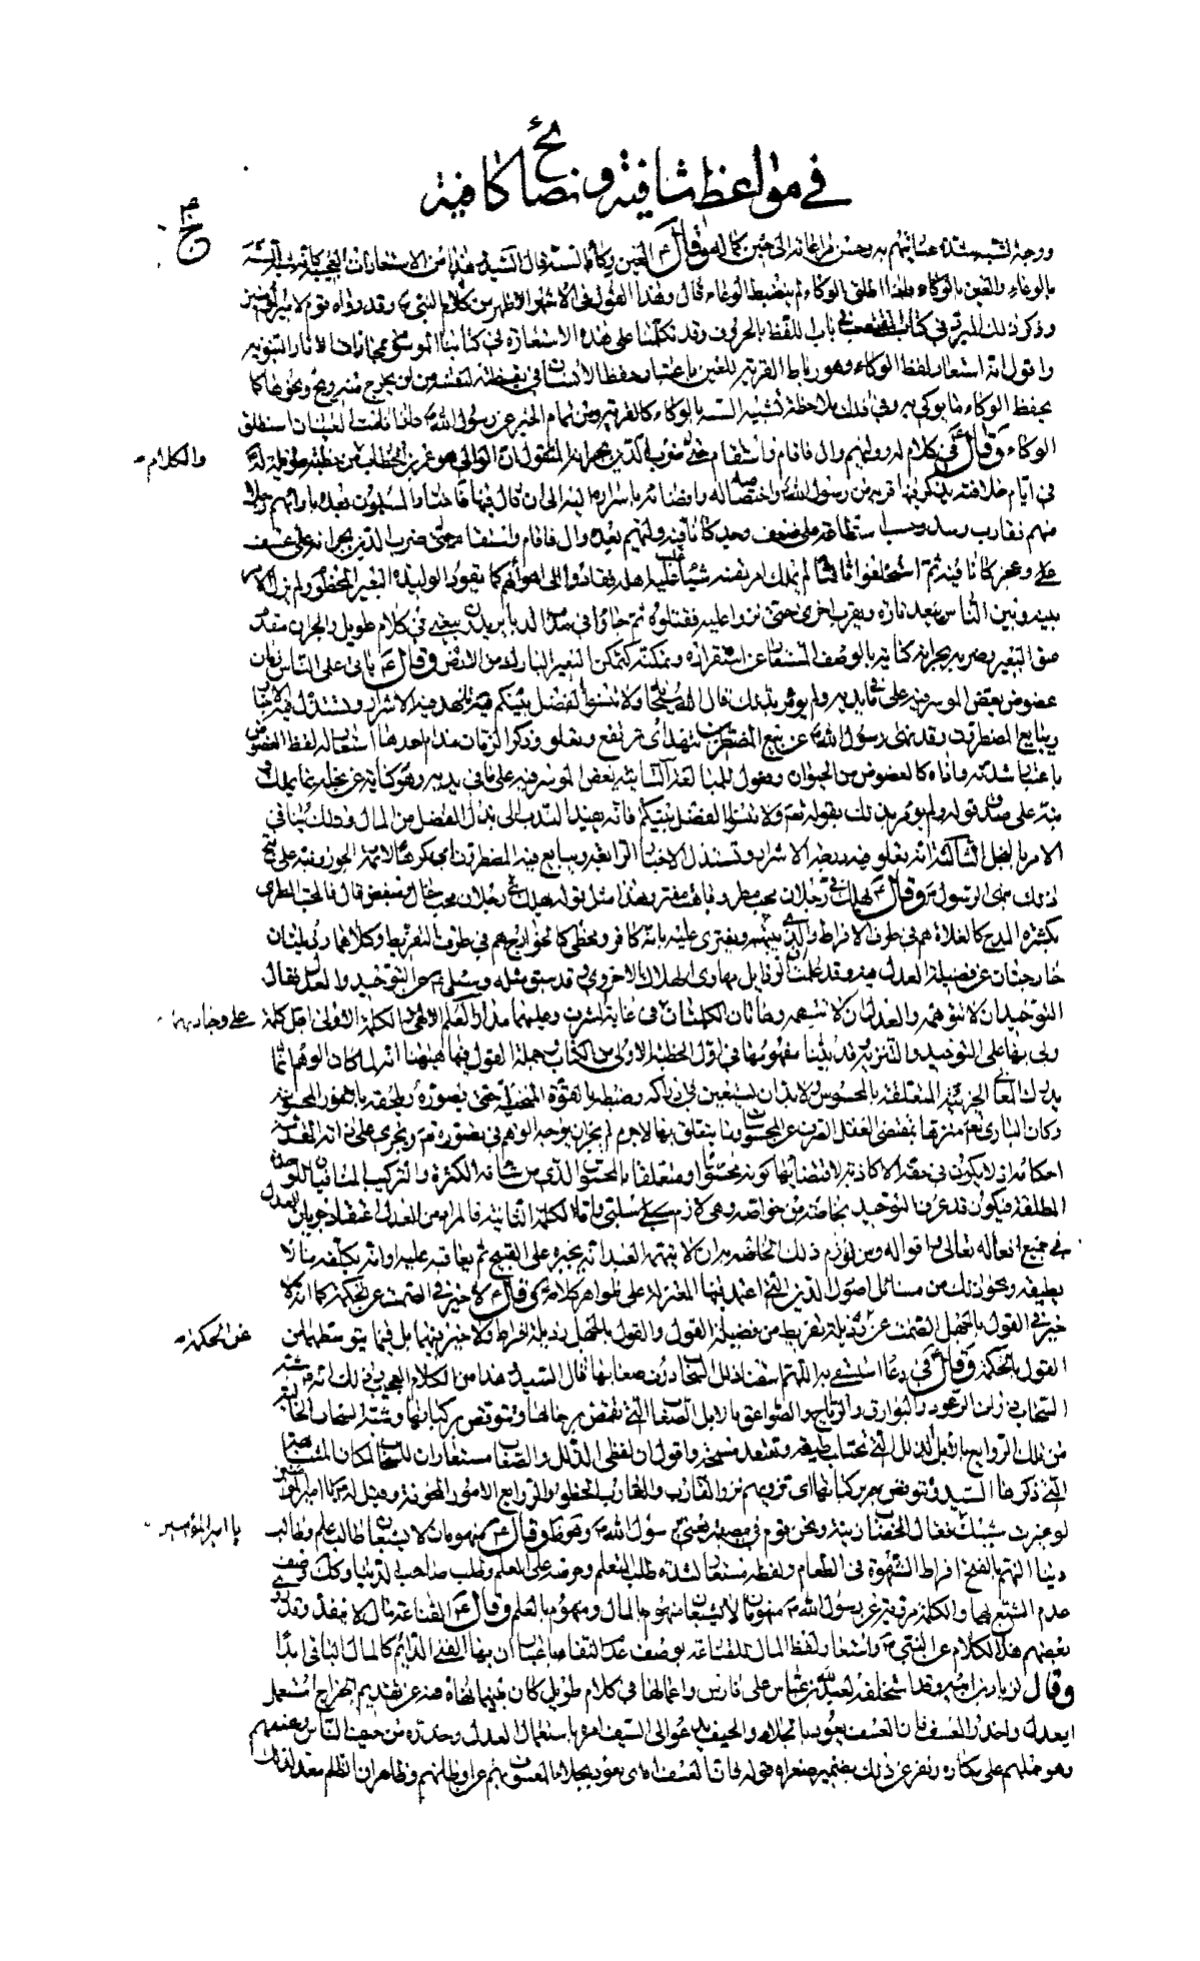 في مواعظ شافية ونصائح كافية
ووجه التشبيه شدة عنايتهم به وحسن مراعاته الى حين كماله وقال ع العين وكاء السته قال السيد هذا من الاستعارات العجيبة كأنه شبه السته
بالوعاء والعين بالوكاء فاذا اطلق الوكاء لم ينضبط الوعاء قال وهذا القول في الاشهر الاظهر من كلام النبي وقد رواه قوم لامير المؤمنين
وذكر ذلك المبرد في كتاب المقتضب في باب اللفظ بالحروف وقد تكلمنا على هذه الاستعارة في كتابنا الموسوم بمجازات الاثار النبوية
واقول انه استعار لفظ الوكاء وهو رباط القربة للعين باعتبار حفظ الانسان في يقظته لنفسه من ان يخرج منه ريح ونحوها كما
يحفظ الوكاء ما يوكى به وفي ذلك ملاحظة تشبيه السته بالوعاء كالقربة ومن تمام الخبر عن رسول الله فاذا نامت العينان استطلق
الوكاء وقال ع في كلام له ووليهم وال فاقام واستقام حتى ضرب الدين بجرانه المنقول ان الوالي هو عمر بن الخطاب من خطبة طويلة له
والكلام
في ايام خلافته يذكر فيها قربه من رسول الله واختصاصه له وافضائه باسراره اليه الى ان قال فيها فاختار المسلمون بعده بارائهم رجلا
منهم فقارب وسدد حسب استطاعته على ضعف وحد كانا فيه ووليهم بعده وال فاقام واستقام حتى ضرب الدين بجرانه على عسف
وعجز كانا فيه ثم استخلفوا ثالثا لم يملك امر نفسه شيئا غلب عليه اهله فقادوه الى اهوائهم كما يقود الوليدة البعير المخطوم ولم يزل الامر
بينه وبين الناس يبعد تارة ويقرب اخرى حتى نزوا عليه فقتلوه ثم جاؤا في مدب الدبا يريدون بيعتي في كلام طويل والجران مقدم
عنق البعير وضربه بجرانه كناية بالوصف المستعار عن استقراره وتمكنه كتمكن البعير البارك من الارض وقال ع يأتي على الناس زمان
عضوض يعض الموسر فيه على ما في يديه ولم يؤمر بذلك قال الله سبحانه ولا تنسوا الفضل بينكم تنهد فيه الاشرار وتستذل فيه الاخيار
ويبايع المضطرون وقد نهى رسول الله عن بيع المضطرين تنهد اي ترتفع وتعلو وذكر للزمان مذام احدها استعار له لفظ العضوض
باعتبار شدته واذاه كالعضوض من الحيوان وفعول للمبالغة الثانية يعض الموسر فيه على ما في يديه وهو كناية عن بخله بما يملك
نبه على قوله ولم يؤمر بذلك بقوله تعالى ولا تنسوا الفضل بينكم فانه يفيد الندب الى بذل الفضل من المال وذلك ينافي
الامر بالبخل الثالثة انه تعلو فيه درجة الاشرار وتستذل الاخيار الرابعة ويبايع فيه المضطرون
ذلك بنهي الرسول وقال ع يهلك في رجلان محب مطر وباهت مفتر وهذا مثل قوله هلك في رجلان محب غال ومبغض قال فالمحب المطري
بكثرة المدح كالغلاة هم في طرف الافراط والذي يبهته ويفتري عليه بانه كافر ومخطئ كالخوارج هم في طرف التفريط وكلاهما رذيلتان
خارجتان عن فضيلة العدل فيه وقد علمت ان الرذايل مهاوي الهلاك الاخروي وقد سبق مثله وسئل ع عن التوحيد والعدل فقال
التوحيد ان لا تتوهمه والعدل ان لا تتهمه وهاتان الكلمتان في غاية الشرف وعليهما مدار العلم الالهي الكلمة الاولى اجل كلمة
وبنى بها على التوحيد والتنزيه وقد بينا مفهومها في اول الخطبة الاولى من الكتاب وجملة القول فيها هيهنا انه لما كان الوهم انما
يدرك المعاني الجزئية المتعلقة بالمحسوس ولا بد ان يستعين في ادراكه وضبطه بالقوة المتخيلة حتى يصوره ويلحقه بالامور المحسوسة
وكان الباري تعالى منزها بمقتضى العقل الصرف عن المحسوسات وما يتعلق بها لا جرم لم يجز ان يوجه الوهم في تصوره تعالى ويجري على ذاته المقدسة
احكامه اذ لا يكون في حقه الا كاذبة لاقتضائها كونه محسوسا او متعلقا بالمحسوس الذي من شانه الكثرة والتركيب المنافيان للوحدة
المطلقة فيكون قد عرف التوحيد بخاصة من خواصه وهي لازم سلبي واما الكلمة الثانية فالمراد من العدل اعتقاد جريان العدل
في جميع افعاله تعالى واقواله ومن لوازم ذلك الخاصة به ان لا يتهمه العبد انه يجبره على القبيح ثم يعاقبه عليه او انه يكلفه ما لا
يطيقه ونحو ذلك من مسائل اصول الدين التي اعتمد فيها المعتزلة على ظواهر كلامه وقال ع لا خير في الصمت عن الحكم كما انه لا
خير في القول بالجهل الصمت عن رذيلة تفريط من فضيلة القول والقول بالجهل رذيلة افراط ولا خير فيهما بل فيما يتوسطهما من
عن الحكمة
القول بالحكمة وقال ع في دعاء استسقى به اللهم اسقنا ذلل السحاب دون صعابها قال السيد هذا من الكلام العجيب وذلك انه شبه
السحاب ذوات الرعود والبوارق والرياح والصواعق بالابل الصعاب التي تقمص برحالها وتتوقص بركبانها وشبه السحاب الخالية
من تلك الروايع بالابل الذلل التي تحتلب طيعة وتقتعد مسمحة واقول ان لفظي الذلل والصعاب مستعاران للسحاب لمكان المشابهة
التي ذكرها السيد وتتوقص بركبانها اي تزو بهم نزو المقارب والروايع الامور المخوفة وقيل له ع
لو غيرت شيبك فقال الخضاب زينة ونحن قوم في مصيبة يعني برسول الله وهو ظاهر وقال ع منهومان لا يشبعان طالب علم وطالب
يا امير المؤمنين
دنيا النهم بالفتح افراط الشهوة في الطعام ولفظه مستعار لشدة طلب المتعلم وحرصه على العلم وطلب صاحب الدنيا
عدم الشبع لهما والكلمة مروية عن رسول الله منهومان لا يشبعان منهوم بالمال ومنهوم بالعلم وقال ع القناعة مال لا ينفد وقد روى
بعضهم هذا الكلام عن النبي واستعار لفظ المال للقناعة بوصف عدم النفاد باعتبار ان بها الغنى الدائم كالمال الباقي ابدا
وقال لزياد بن ابيه وقد استخلفه لعبد الله بن عباس على فارس واعمالها في كلام طويل كان بينهما نهاه فيه عن تقديم الخراج استعمل
العدل واحذر العسف فان العسف يعود بالجلاء والحيف يدعو الى السيف امره باستعمال العدل وحذره من حيف الناس وعسفهم
وهو حملهم على مكاره ونفر عن ذلك بضمير صغراه قوله فان العسف اه اي يعود بجلاء المعسوف بهم عن اوطانهم وظاهر ان الظلم معد لذلك